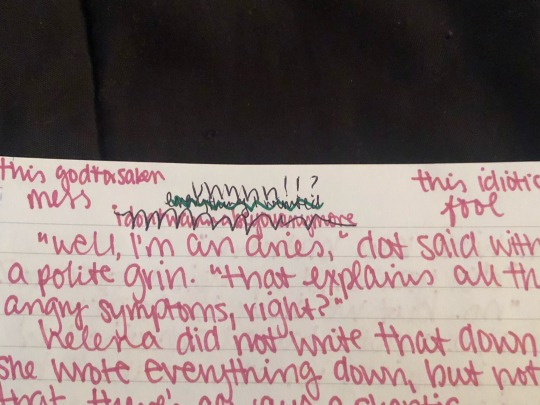 this godforsaken
mess
this idiotic
fool
uhhhhh!!?
"well, I'm an aries," dot said with
a polite grin. "that explains all th
angry symptoms, right?"
Helena did not write that down
she wrote everything down, but not
that. there's